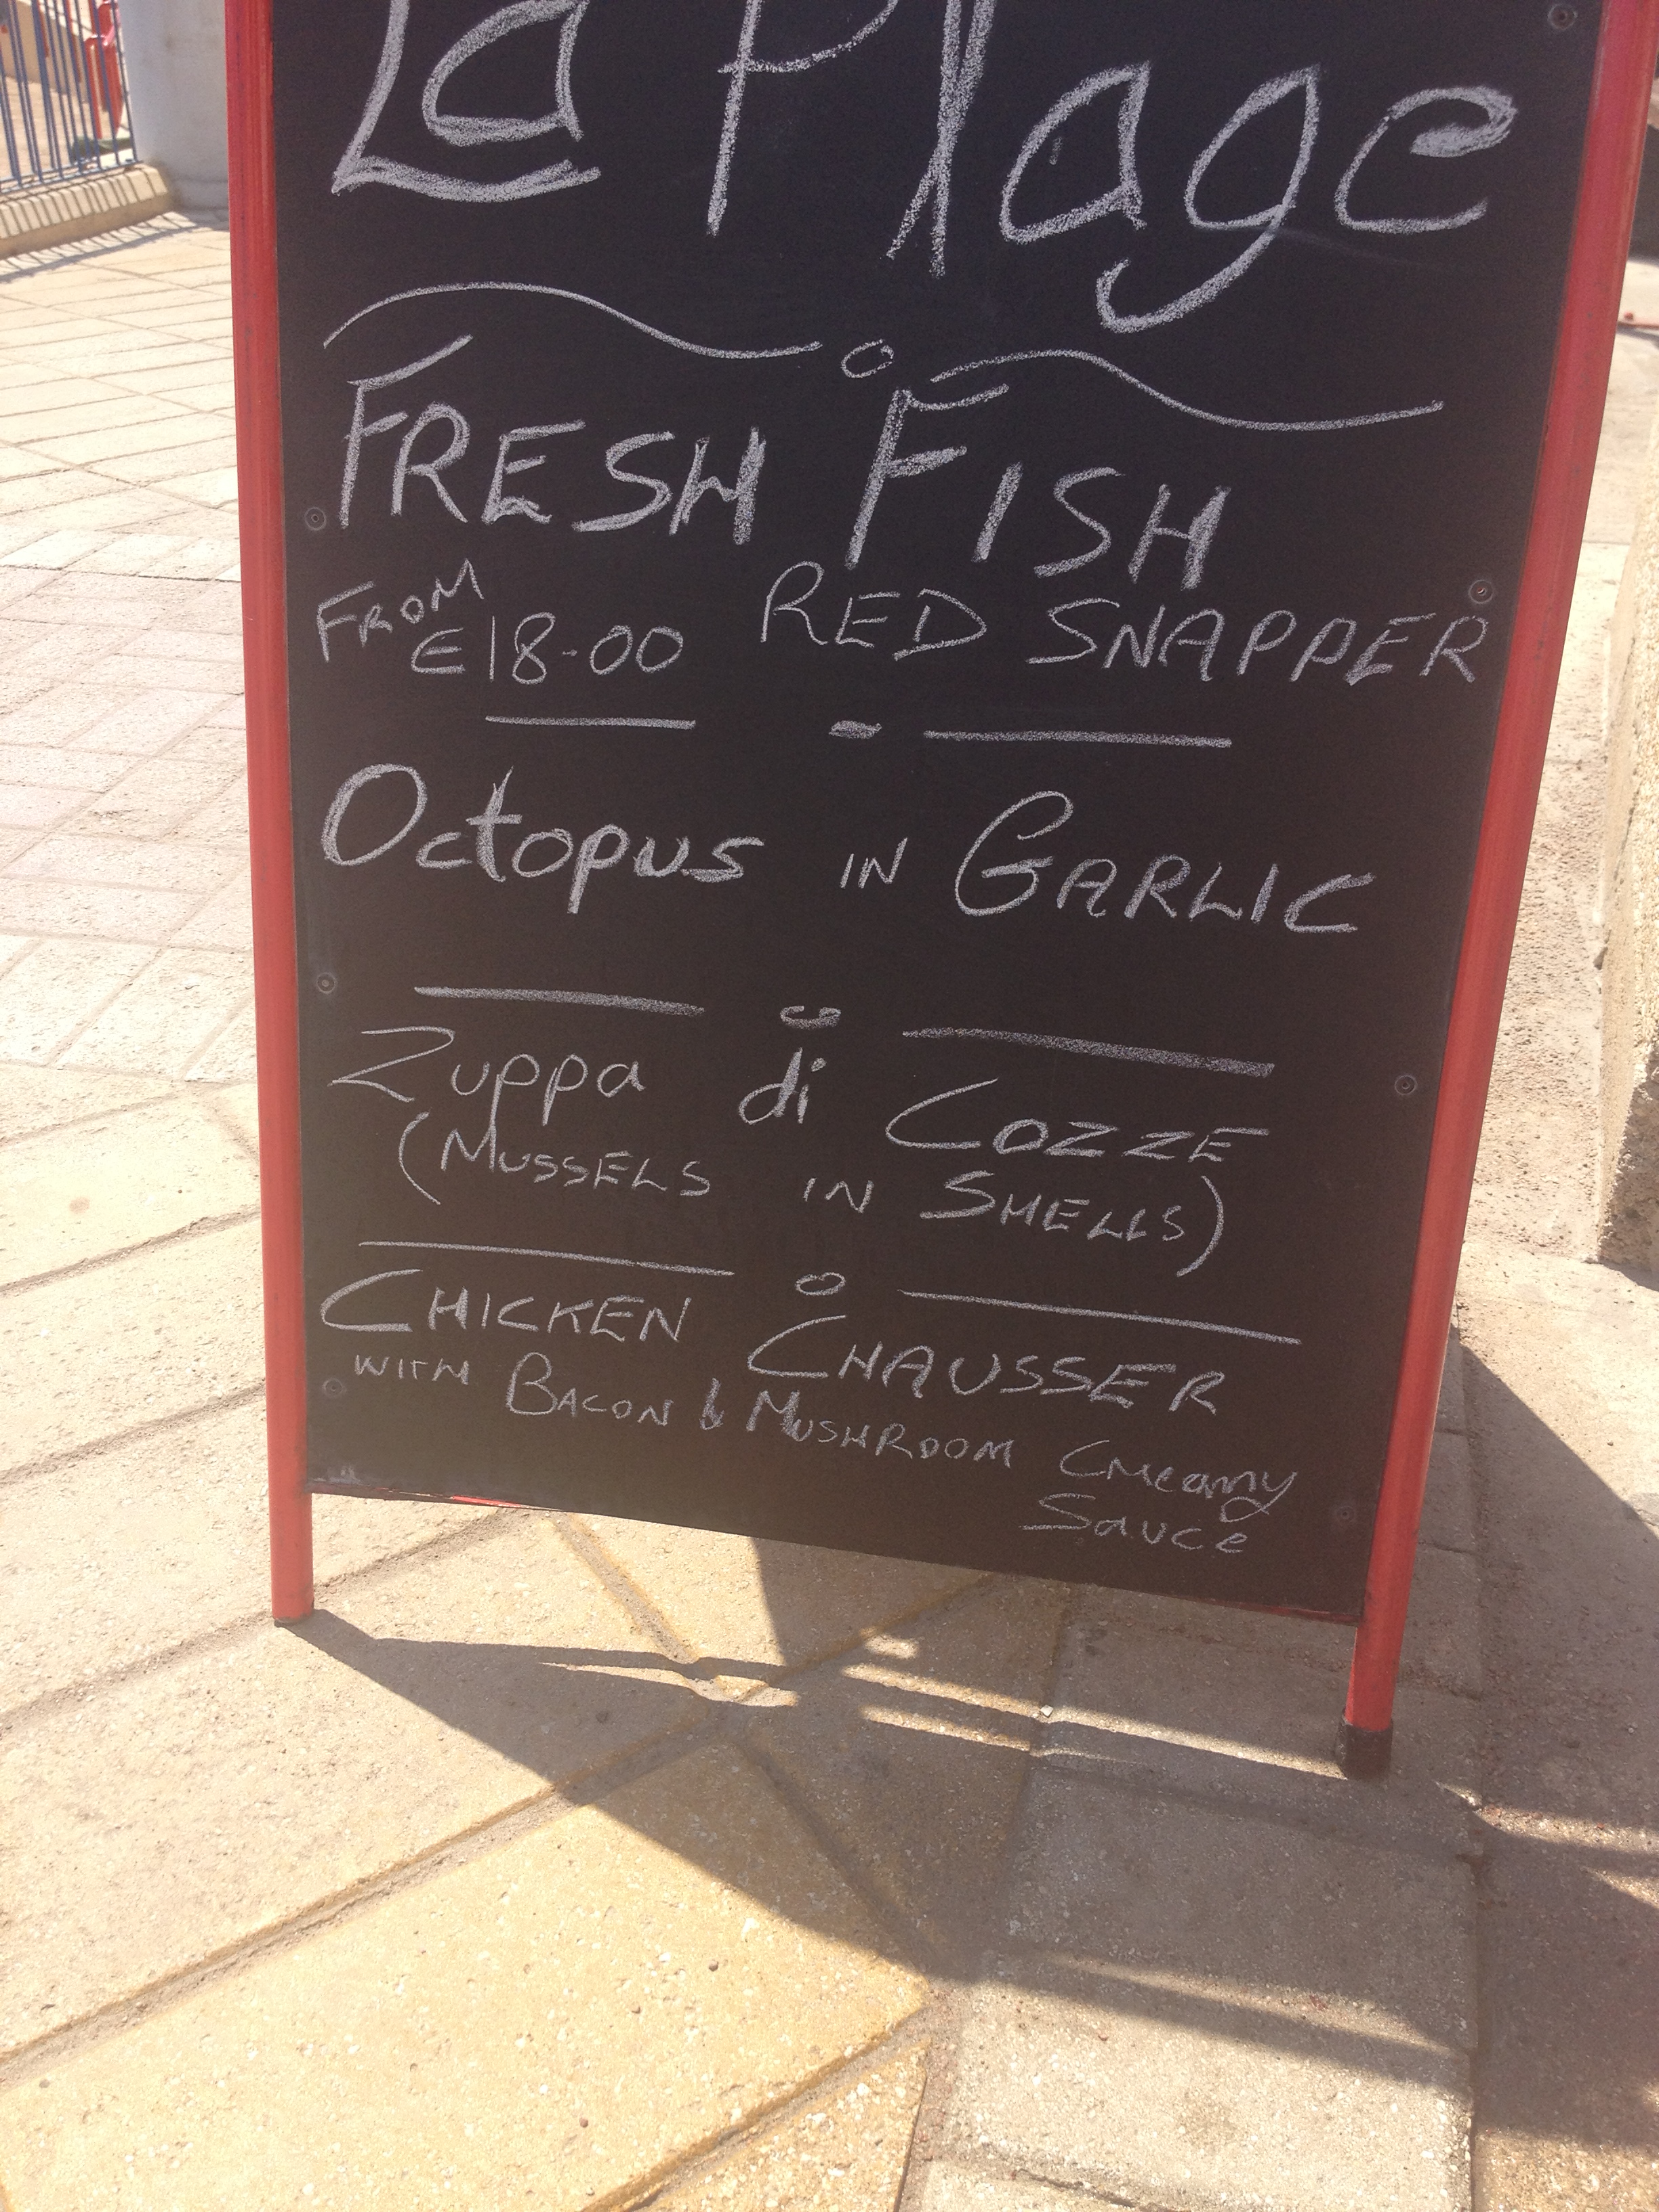 La Plage
FRESH FISH
FROM €18-00 RED SNAPPER
Octopus IN GARLIC
Zuppa di COZZE
(MUSSELS IN SHELLS)
CHICKEN CHAUSSER
WITH BACON & MUSHROOM Creamy
Sauce